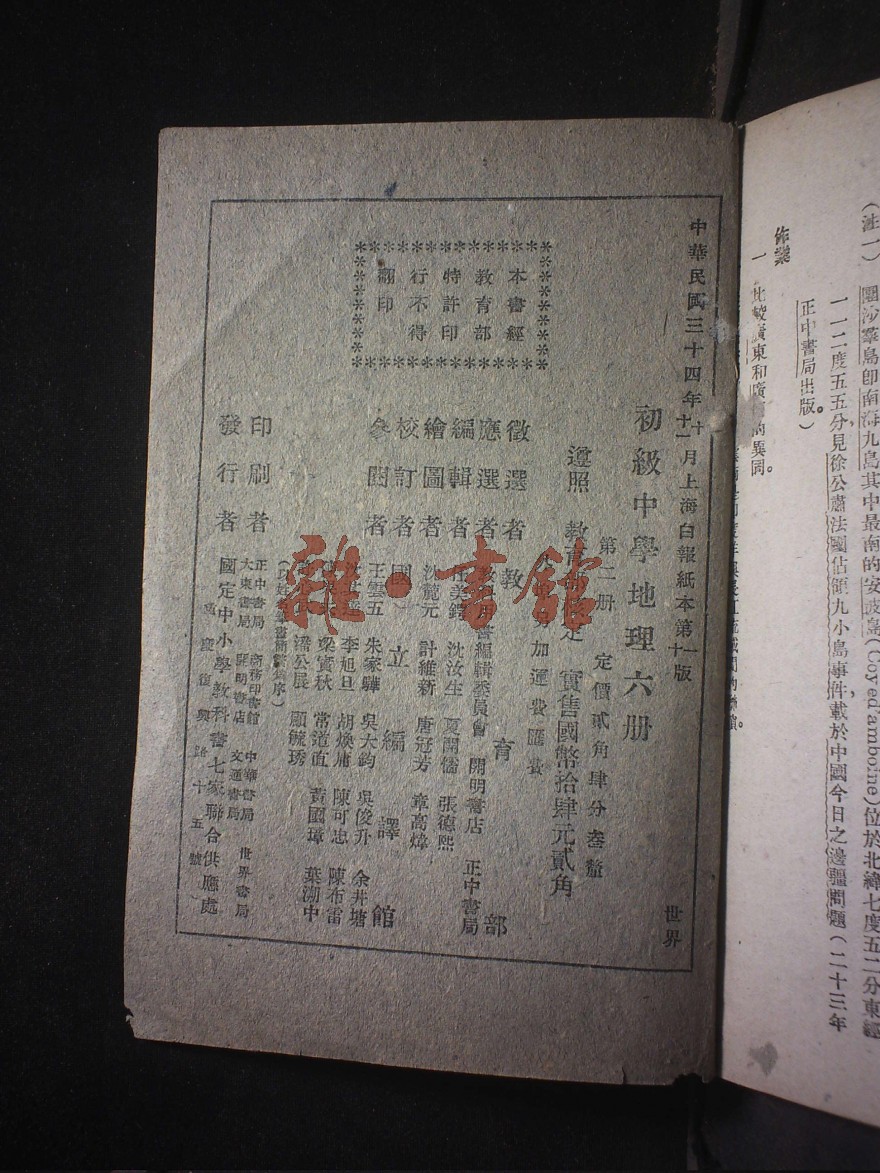 中華民國三十四年十月上海白報紙本第一版
十一
十
世界
初級中學地理六册
第二册 定價貳角肆分叁釐
遵照 教育 定 實售國幣拾肆元貳角
加運費匯費
本書經
教育部
特許印
行不得
翻印
徵選者 教育部
應選者 書編輯委員會 開明書店 正中書局
編輯者 任美鍔 沈汝生 夏開儒 張德熙
繪圖者 沈麓元 計維新 唐冠芳 章高煒
校訂者 國立編譯館
參閱者 王雲五 朱家驊 吳大鈞 吳俊升 余井塘
李旭旦 胡煥庸 陳可忠 陳布雷
梁實秋 常道直 黃國璋 葉溯中
潘公展 顧毓琇
印刷者 正中書局 商務印書館 中華書局 世界書局
大東書局 開明書店 文通書局
發行者 國定中小學教科書七家聯合供應處
重慶復興路十五號
雜·書館
(注一) 團沙羣島卽南海九島其中最南的安波島(Coyed amboine)位於北緯七度五二分東經
一一二度五五分見徐公肅法國佔領九小島事件載於中國今日之邊疆問題(二十三年
正中書局出版。)
作業
一 比較廣東和廣 的異同。